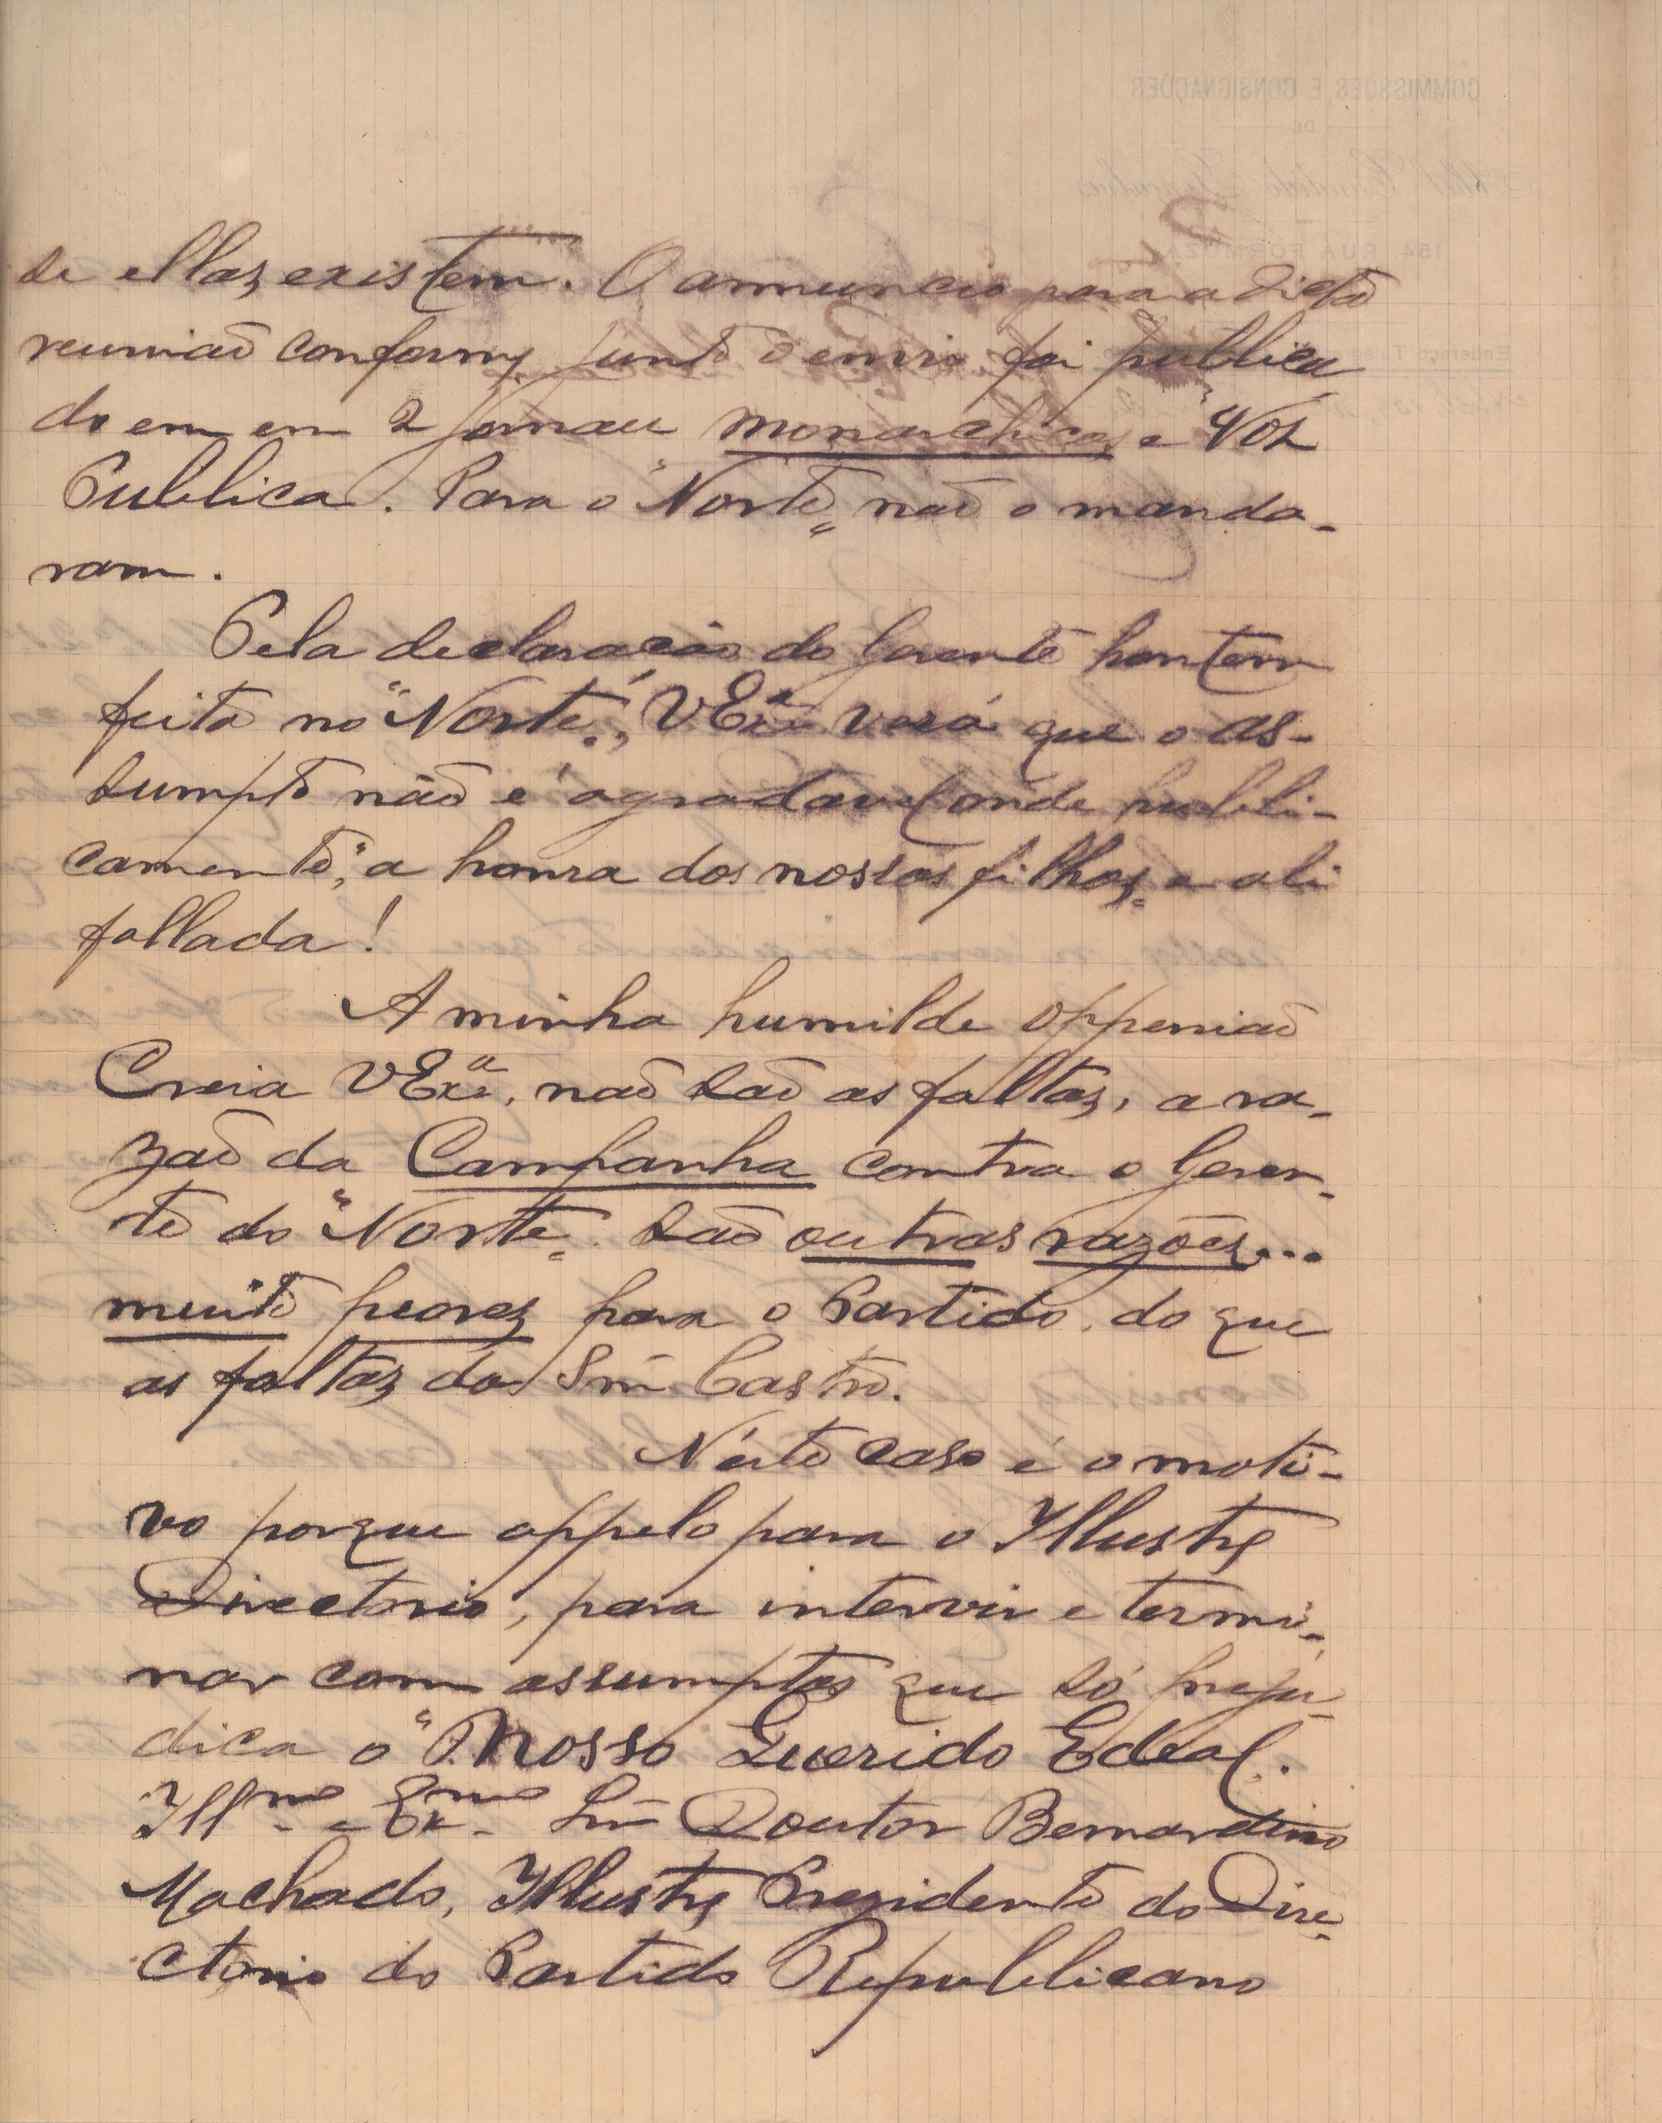 de ellas existem. O annuncio para a dicta
reunião conforme junto o envio foi publica
do em em 2 jornaes monarchicos e "Voz
Publica. Para o "Norte" não o manda-
ram.
Pela declaração do Gerente hontem
feita no "Norte", VExª verá que o as-
sumpto não é agradavel onde publi-
camente, a honra dos nossos filhos e ali
fallada!
A minha humilde oppenião
Creia VExª, não são as faltas, a ra-
zão da Campanha contra o Geren-
te do "Norte". São outras razões...
muito peores para o Partido, do que
as faltas do Snr Castro.
N'éste caso é o moti-
vo porque appelo para o Illustre
Directorio, para intervir e termi-
nar com assumptos que só preju-
dica o "Nosso Querido Edeal.
Illmo e Exmo Snr Doutor Bernardino
Machado, Illustre Prezidente do Dire-
ctorio do Partido Republicano
COMMISSÕES E CONSIGNAÇÕES
DE